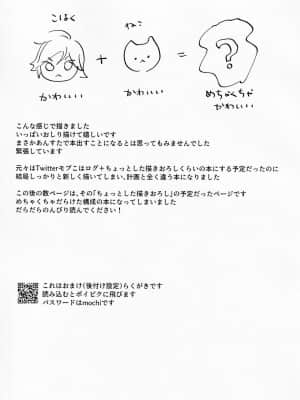 こはく
ねこ
+
=
?
かわいい
かわいい
めちゃくちゃ
かわいい
こんな感じで描きました
いっぱいおしり描けて嬉しいです
まさかあんスタで本出すことになるとは思ってもみませんでした
緊張しています
元々はTwitterモブこはログ+ちょっとした描きおろしくらいの本にする予定だったのに
結局しっかりと新しく描いてしまい、計画と全く違う本になりました
この後の数ページは、その「ちょっとした描きおろし」の予定だったページです
めちゃくちゃだらけた構成の本になってしまいました
だらだらのんびり読んでください!
これはおまけ(後付け設定)らくがきです
読み込むとポイピクに飛びます
パスワードはmochiです